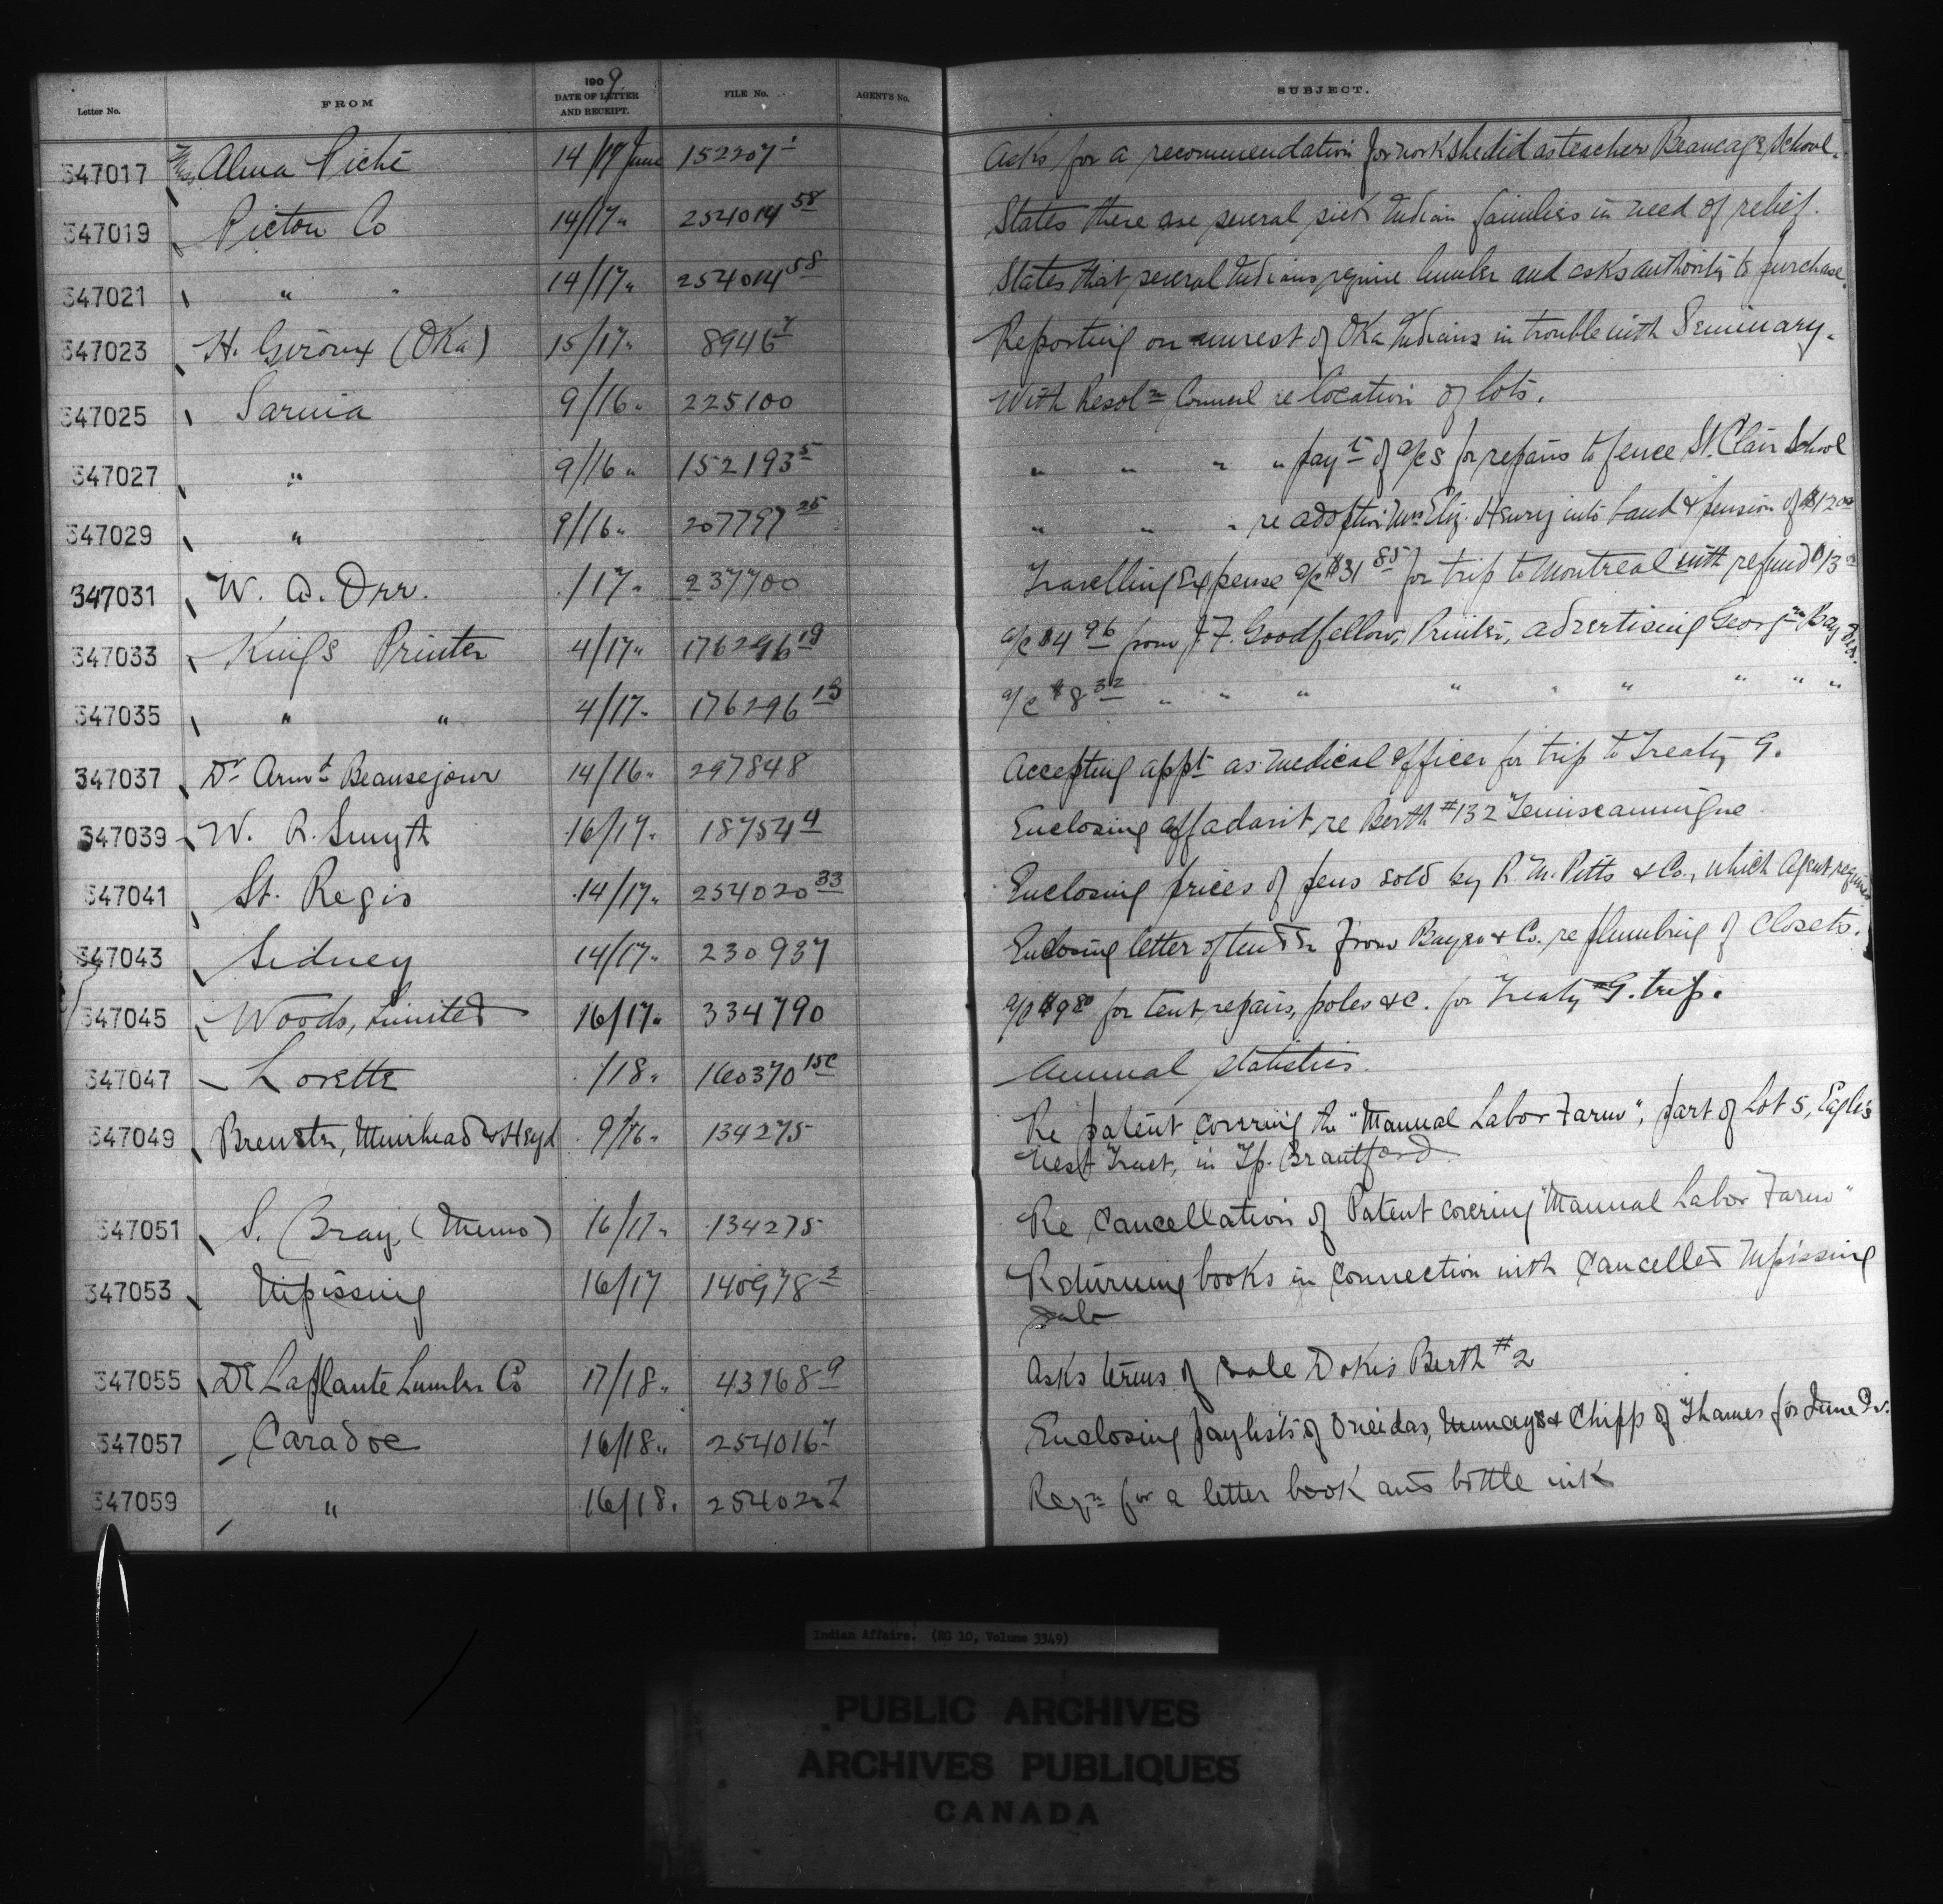 Letter No. FROM 1909 DATE OF LETTER AND RECEIPT. FILE No. AGENT'S No. SUBJECT.
347017 Miss Alma Piché 14/17 June 152207-1 Asks for a recommendation for work she did as teacher Beaucage School.
347019 Pictou Co 14/17 " 254014 58 States there are several sick Indian families in need of relief.
347021 " " 14/17 " 254014 58 States that several Indians require lumber and asks authority to purchase.
347023 H. Giroux (Oka) 15/17 " 8946 7 Reporting on unrest of Oka Indians in trouble with Seminary.
347025 Sarnia 9/16 " 225100 With Resol n Council re location of lots.
347027 " 9/16 " 152193 5 " " " " pay t of a/cs for repairs to fence St. Clair School
347029 " 9/16 " 207797 25 " " " re adoption Mrs Eliz. Henry into band & pension of $12 00
347031 W. A. Orr. /17 " 237700 Travelling Expense a/c $31 85 for trip to Montreal with refund $13
347033 Kings Printer 4/17 " 176296 19 a/c $4 96 from J. F. Goodfellow, Printer, advertising Georgn Bay
347035 " " 4/17 " 176296 19 a/c $8 32 " " " " " " " " "
347037 Dr Armd Beausejour 14/16 " 297848 Accepting appt as medical officer for trip to Treaty 9.
347039 W. R. Smyth 16/17 " 18754 4 Enclosing affadavit, re Berth #132 Temiscamingue
347041 St. Regis 14/17 " 254020 33 Enclosing prices of pens sold by R. M. Pitts & Co., which Agent requires
347043 Sidney 14/17 " 230937 Enclosing letter of tender from & Co. re plumbing of closets.
347045 Woods, Limited 16/17 " 334790 a/c $9 80 for tent, repairs, poles &c. for Treaty 9. trip.
347047 Lorette /18 " 160370 15c Annual statistics.
347049 Brewster, Muirhead & Heyd 9/16 " 134275 Re patent covering the "Manual Labor Farm", part of Lot 5, Eagle's
Nest Tract, in Tp. Brantford
347051 S. Bray, (Memo) 16/17 " 134275 Re Cancellation of Patent covering "Manual Labor Farm"
347053 Nipissing 16/17 140978 2 Returning books in connection with Cancelled Nipissing
sale
347055 De Laplante Lumber Co 17/18 " 43168 9 Asks terms of sale Dokis Berth #2
347057 Caradoc 16/18 " 254016 1 Enclosing paylists of Oneidas, Munceys & Chipp of Thames for June Qr.
347059 " 16/18 " 254020 7 Reqn for a letter book and bottle ink
Indian Affairs. (RG 10, Volume 3349)
PUBLIC ARCHIVES
ARCHIVES PUBLIQUES
CANADA